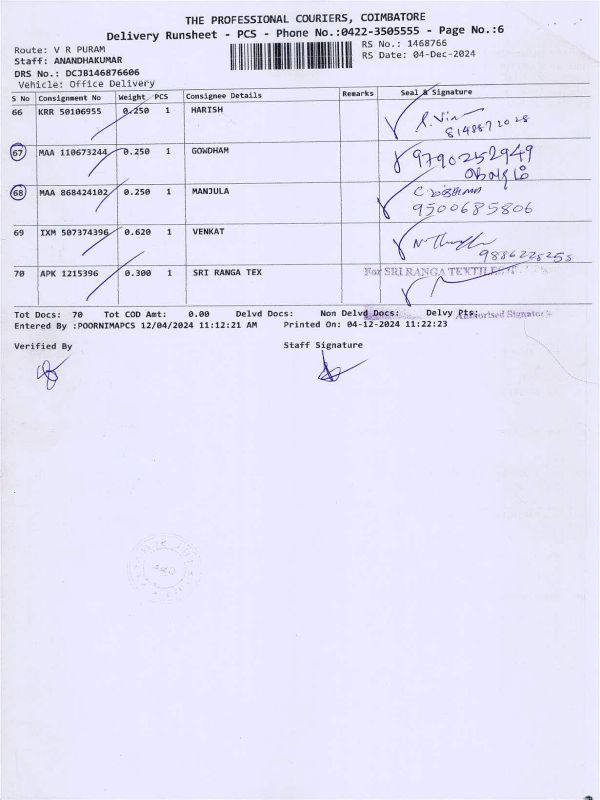 THE PROFESSIONAL COURIERS, COIMBATORE
Delivery Runsheet - PCS - Phone No.:0422-3505555 - Page No.:6
Route: V R PURAM
RS No.: 1468766
Staff: ANANDHAKUMAR
RS Date: 04-Dec-2024
DRS No.: DCJB146876606
Vehicle: Office Delivery
S No Consignment No Weight PCS Consignee Details Remarks Seal & Signature
66 KRR 50106955 0.250 1 HARISH
67 MAA 110673244 0.250 1 GOWDHAM 9790252949
68 MAA 868424102 0.250 1 MANJULA
9500685806
69 IXM 507374396 0.620 1 VENKAT
9886228258
70 APK 1215396 0.300 1 SRI RANGA TEX For SRI RANGA TEXTILES
Tot Docs: 70 Tot COD Amt: 0.00 Delvd Docs: Non Delvd Docs: Delvy Pts: Authorised Signatory
Entered By :POORNIMAPCS 12/04/2024 11:12:21 AM Printed On: 04-12-2024 11:22:23
Verified By Staff Signature